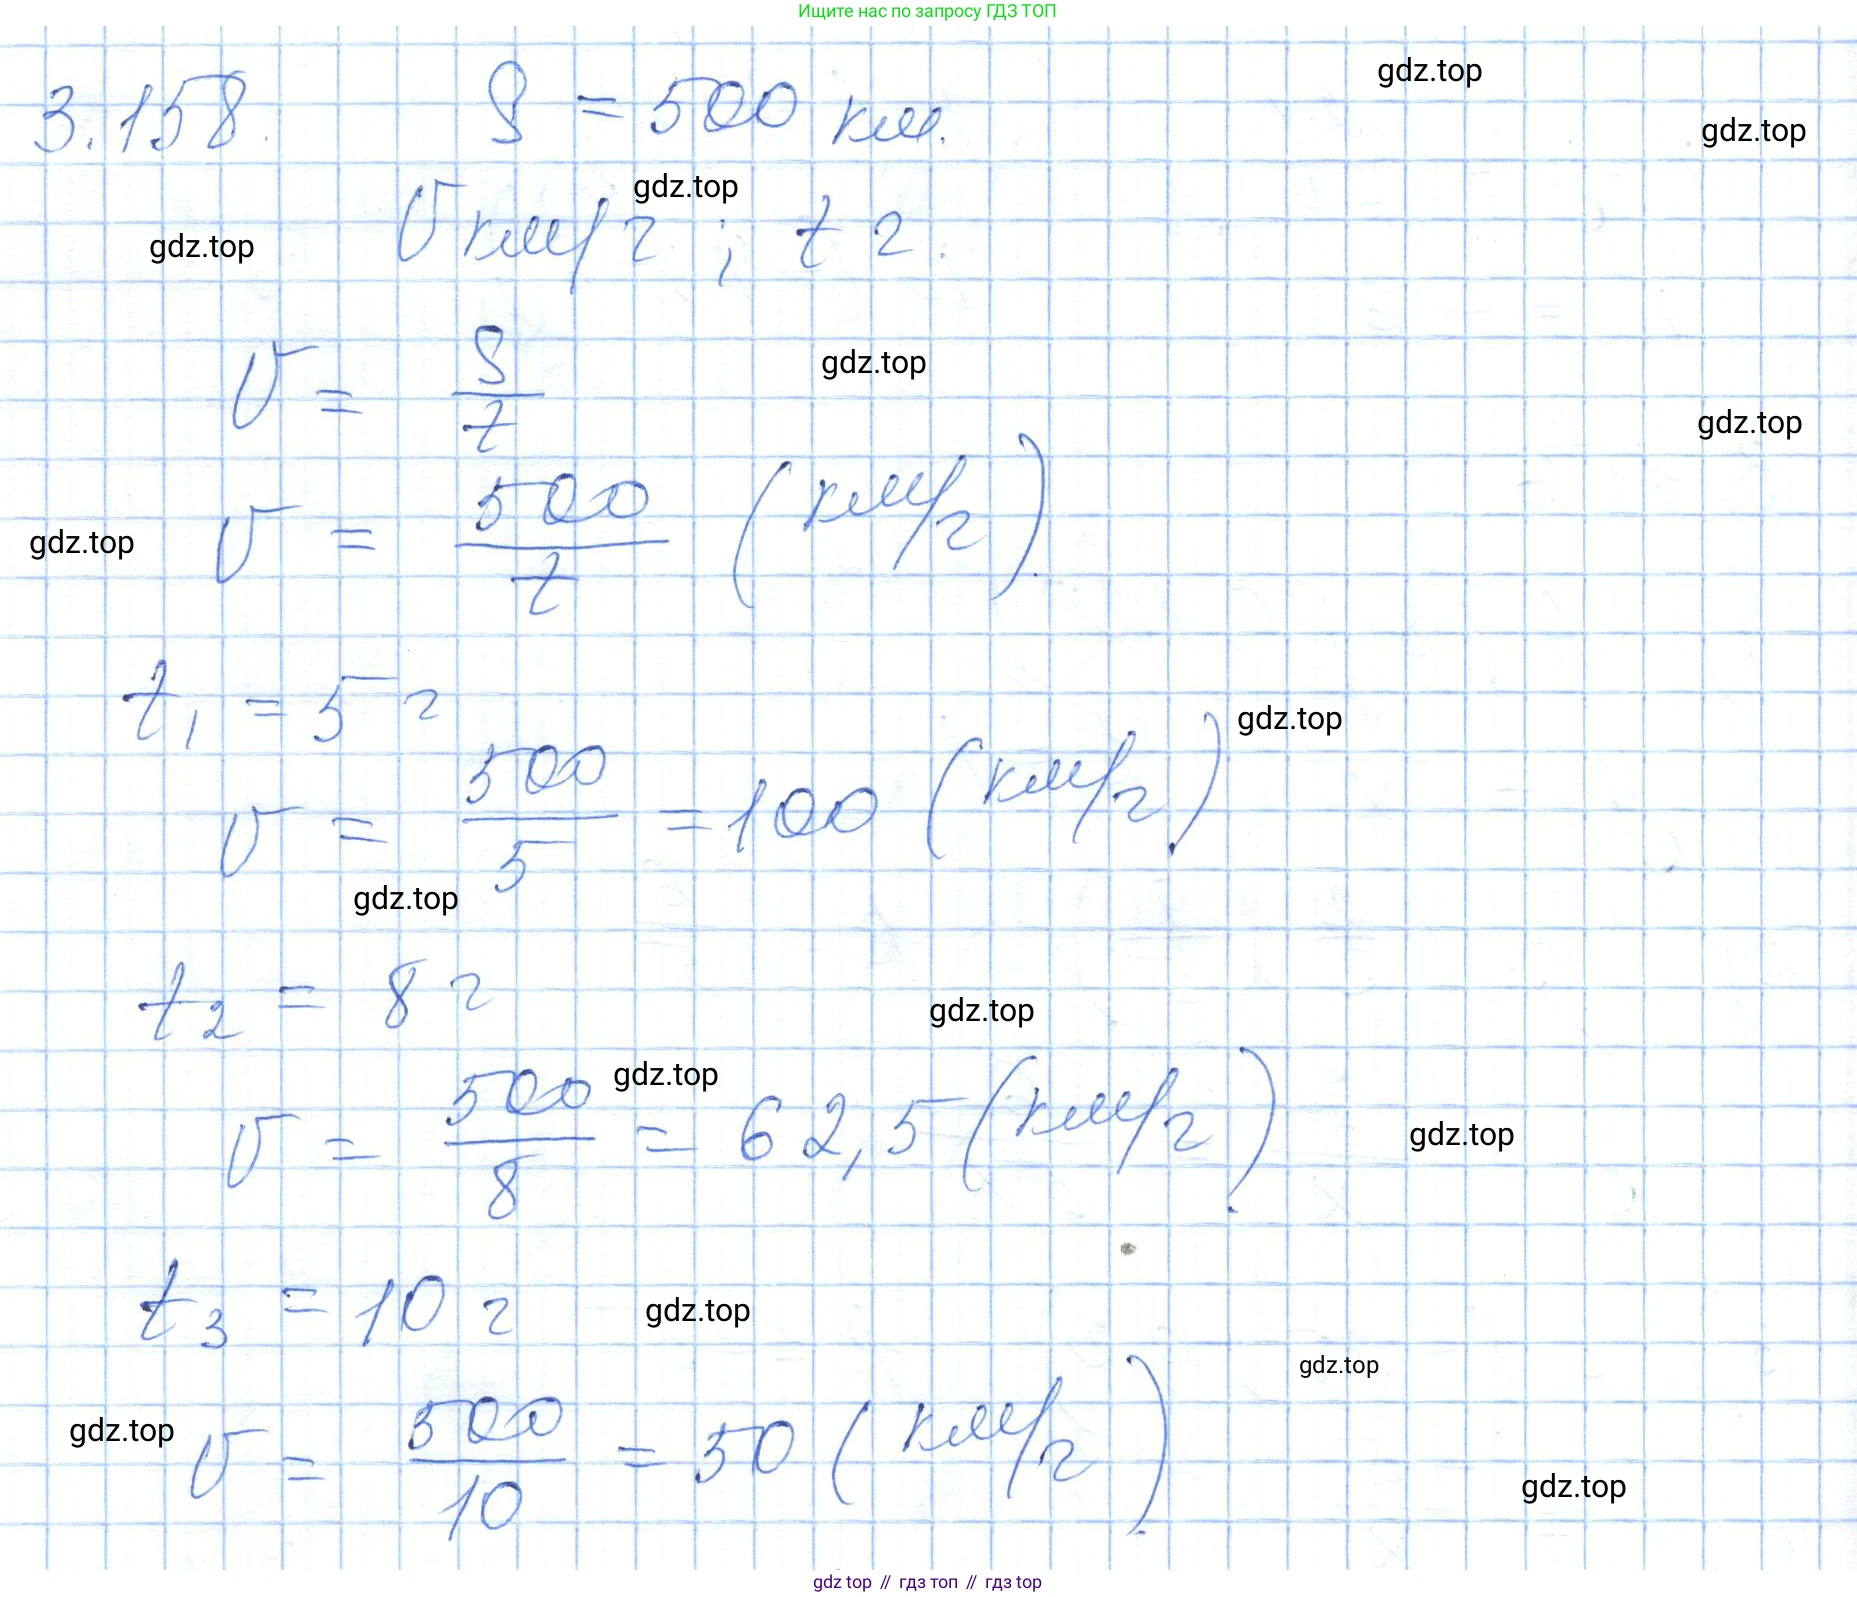 Ищите нас по запросу ГДЗ ТОП
3.158. S = 500 км.
gdz.top
gdz.top
gdz.top
v км/ч ; t ч.
gdz.top
v = S/t
gdz.top
gdz.top
v = 500/t (км/ч).
gdz.top
t₁ = 5 ч
gdz.top
v = 500/5 = 100 (км/ч)
gdz.top
t₂ = 8 ч
gdz.top
gdz.top
v = 500/8 = 62,5 (км/ч).
gdz.top
t₃ = 10 ч
gdz.top
gdz.top
gdz.top
v = 500/10 = 50 (км/ч).
gdz.top
gdz top // гдз топ // гдз top